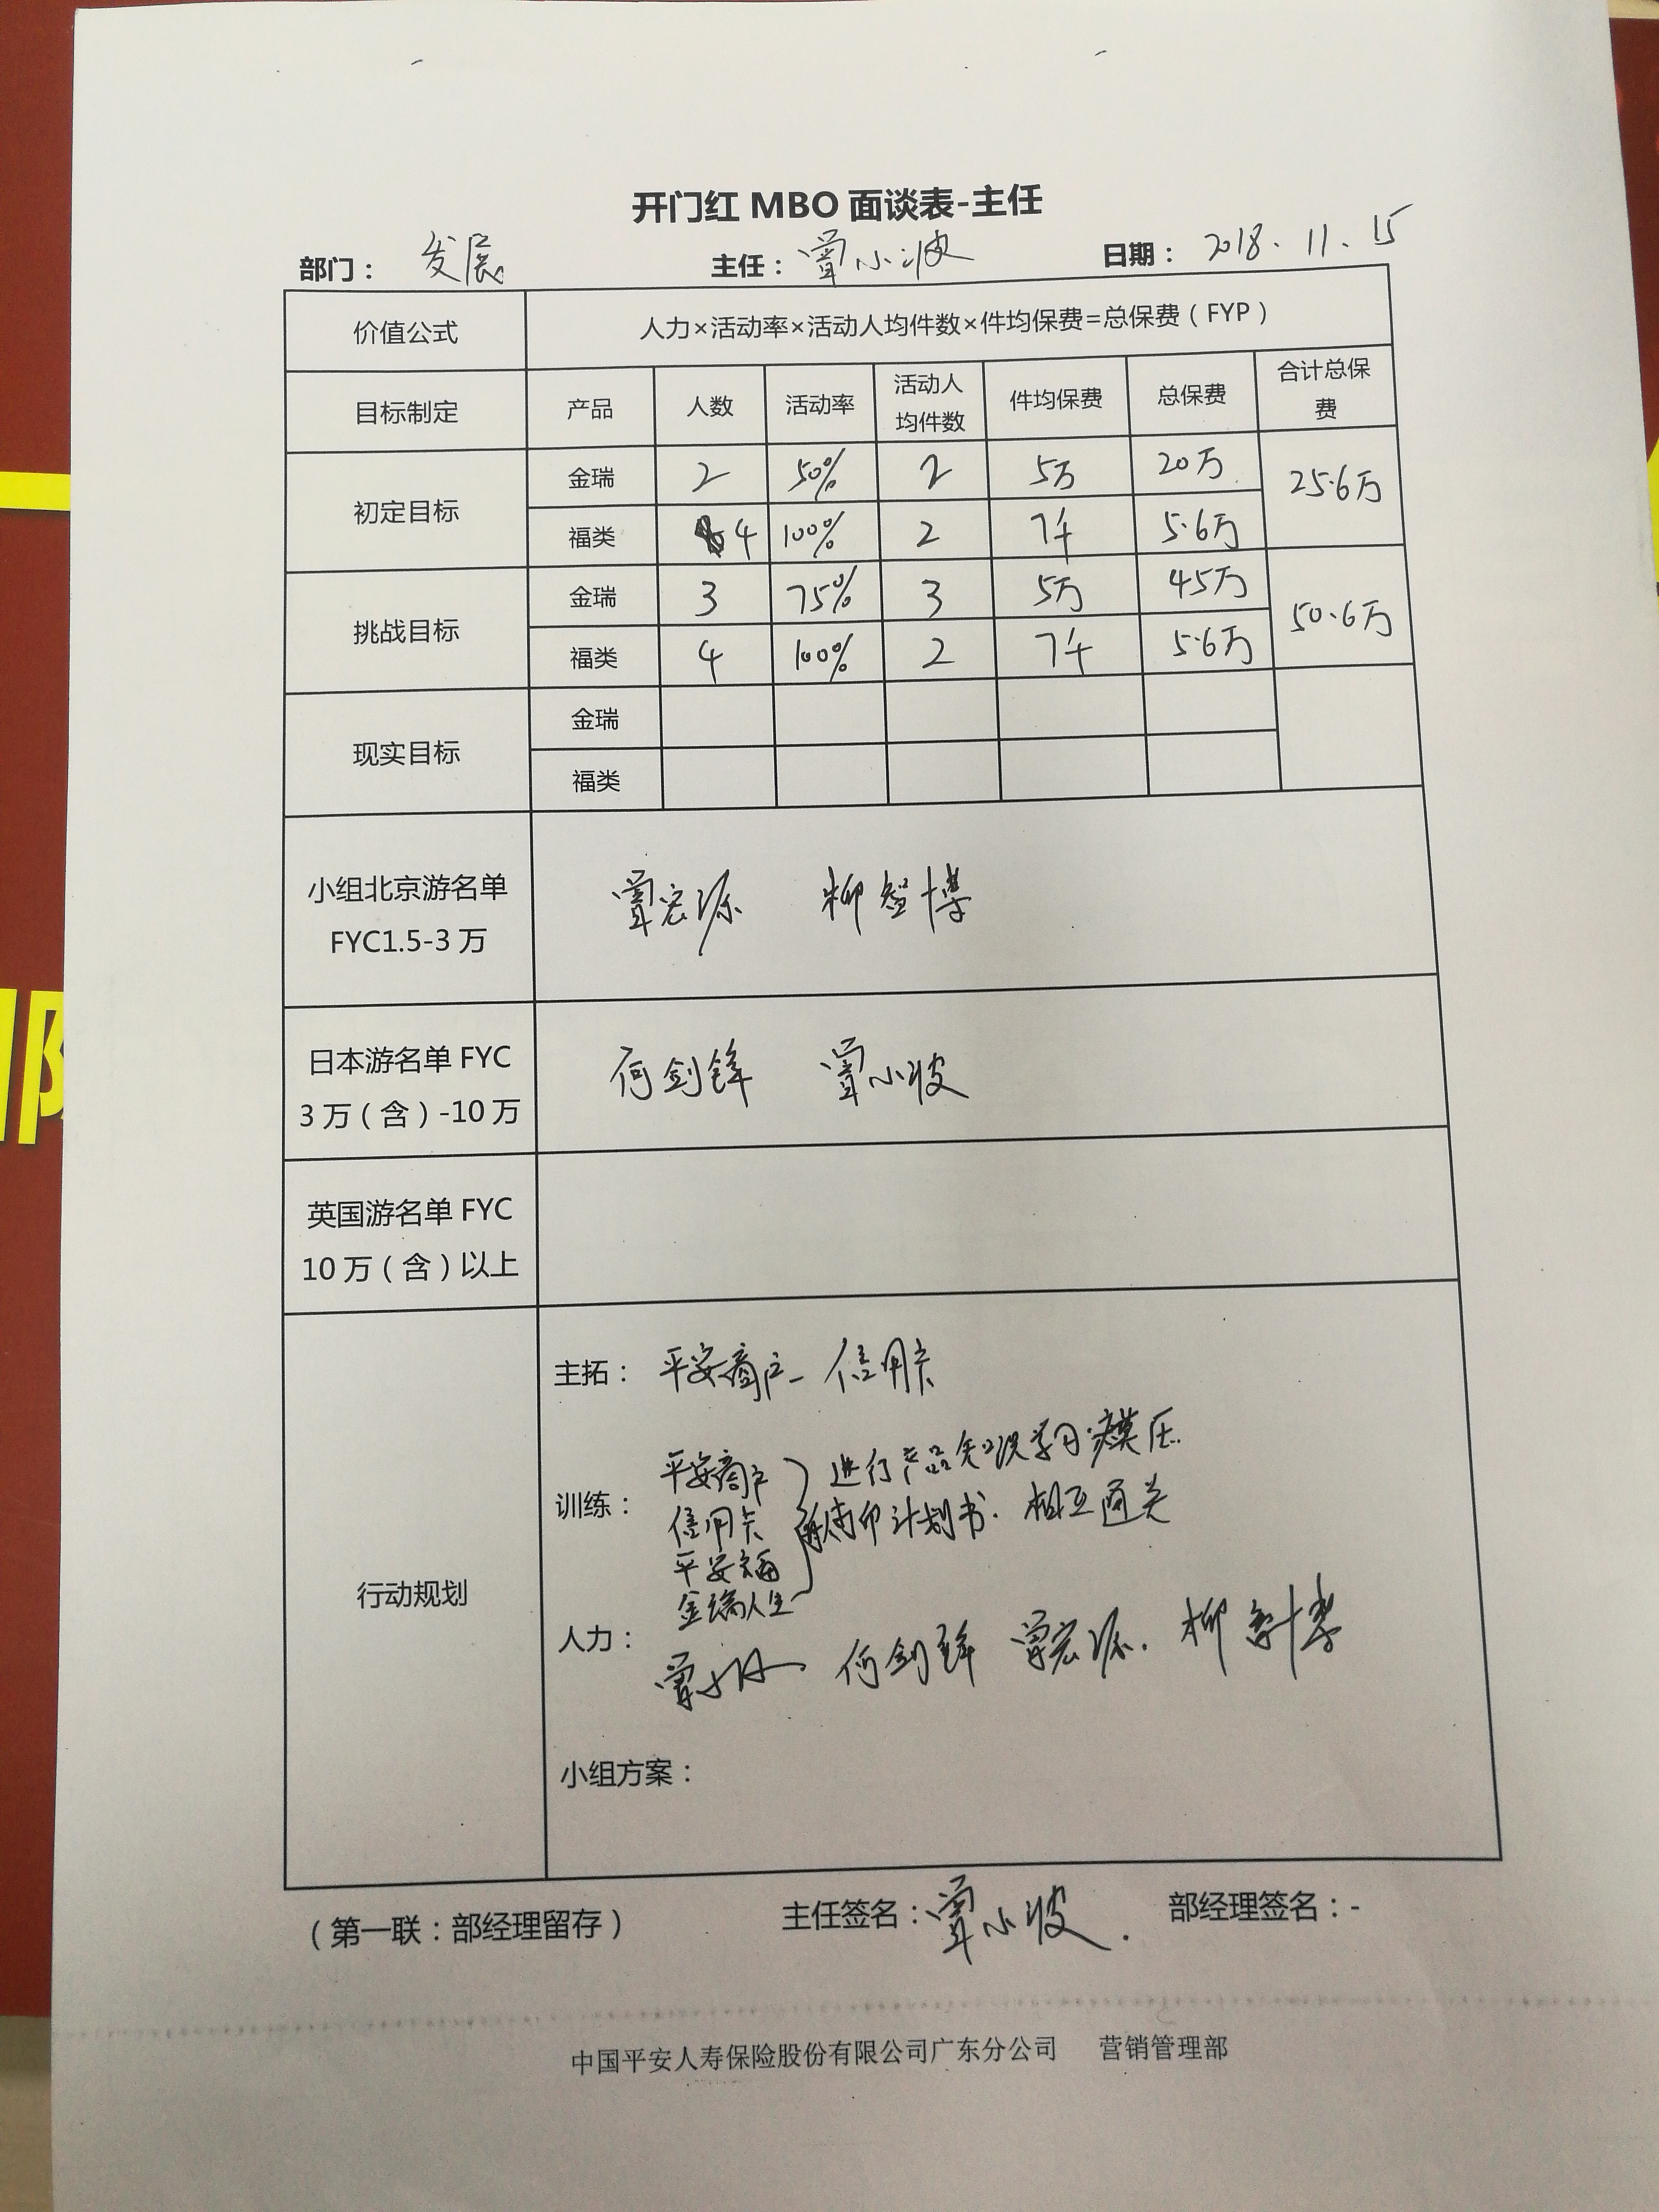 开门红 MBO 面谈表-主任
部门： 发展 主任： 覃小波 日期： 2018.11.15
价值公式 人力×活动率×活动人均件数×件均保费=总保费（FYP）
目标制定 产品 人数 活动率 活动人均件数 件均保费 总保费 合计总保费
初定目标 金瑞 2 50% 2 5万 20万 25.6万
福类 4 100% 2 7千 5.6万
挑战目标 金瑞 3 75% 3 5万 45万 50.6万
福类 4 100% 2 7千 5.6万
现实目标 金瑞
福类
小组北京游名单 覃宏源 柳智博
FYC1.5-3 万
日本游名单 FYC 何剑锋 覃小波
3 万（含）-10 万
英国游名单 FYC
10 万（含）以上
行动规划
主拓： 平安商户- 信用卡
训练： 平安商户 进行产品知识学习
信用卡 打印计划书. 相互通关
平安福
金瑞人生
人力： 覃小波 何剑锋 覃宏源. 柳智博
小组方案：
（第一联：部经理留存） 主任签名：覃小波. 部经理签名：-
中国平安人寿保险股份有限公司广东分公司 营销管理部